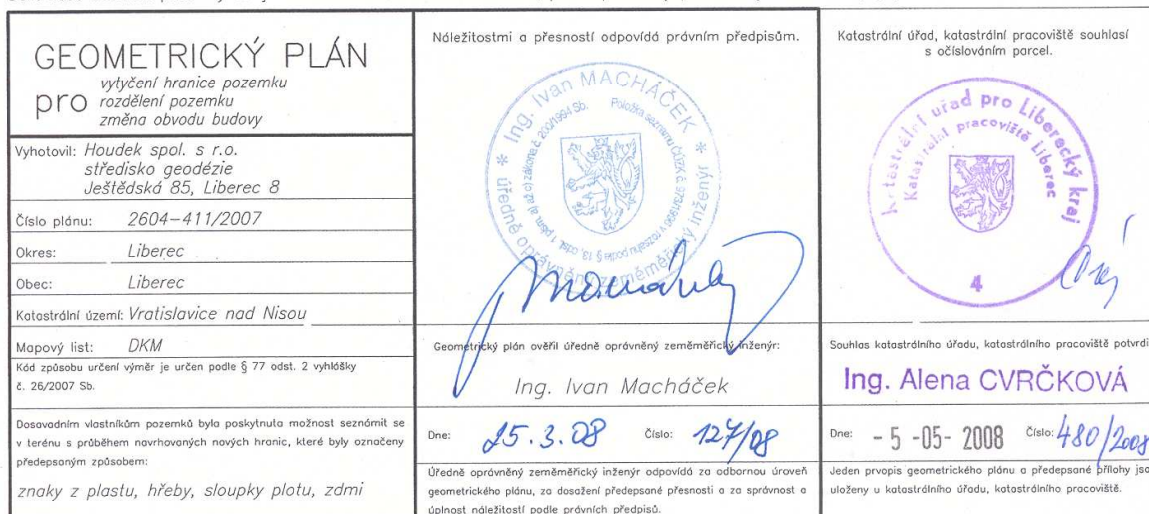 GEOMETRICKÝ PLÁN
pro
vytyčení hranice pozemku
rozdělení pozemku
změna obvodu budovy
Vyhotovil: Houdek spol. s r.o.
středisko geodézie
Ještědská 85, Liberec 8
Číslo plánu: 2604-411/2007
Okres: Liberec
Obec: Liberec
Katastrální území: Vratislavice nad Nisou
Mapový list: DKM
Kód způsobu určení výměr je určen podle § 77 odst. 2 vyhlášky
č. 26/2007 Sb.
Dosavadním vlastníkům pozemků byla poskytnuta možnost seznámit se
v terénu s průběhem navrhovaných nových hranic, které byly označeny
předepsaným způsobem:
znaky z plastu, hřeby, sloupky plotu, zdmi
Náležitostmi a přesností odpovídá právním předpisům.
* Ing. Ivan MACHÁČEK *
úředně oprávněný zeměměřický inženýr
Geometrický plán ověřil úředně oprávněný zeměměřický inženýr:
Ing. Ivan Macháček
Dne: 25.3.08 Číslo: 127/08
Úředně oprávněný zeměměřický inženýr odpovídá za odbornou úroveň
geometrického plánu, za dosažení předepsané přesnosti a za správnost a
úplnost náležitostí podle právních předpisů.
Katastrální úřad, katastrální pracoviště souhlasí
s očíslováním parcel.
Katastrální úřad pro Liberecký kraj
Katastrální pracoviště Liberec
4
Souhlas katastrálního úřadu, katastrálního pracoviště potvrdil
Ing. Alena CVRČKOVÁ
Dne: - 5 -05- 2008 Číslo: 480/2008
Jeden prvopis geometrického plánu a předepsané přílohy jsou
uloženy u katastrálního úřadu, katastrálního pracoviště.